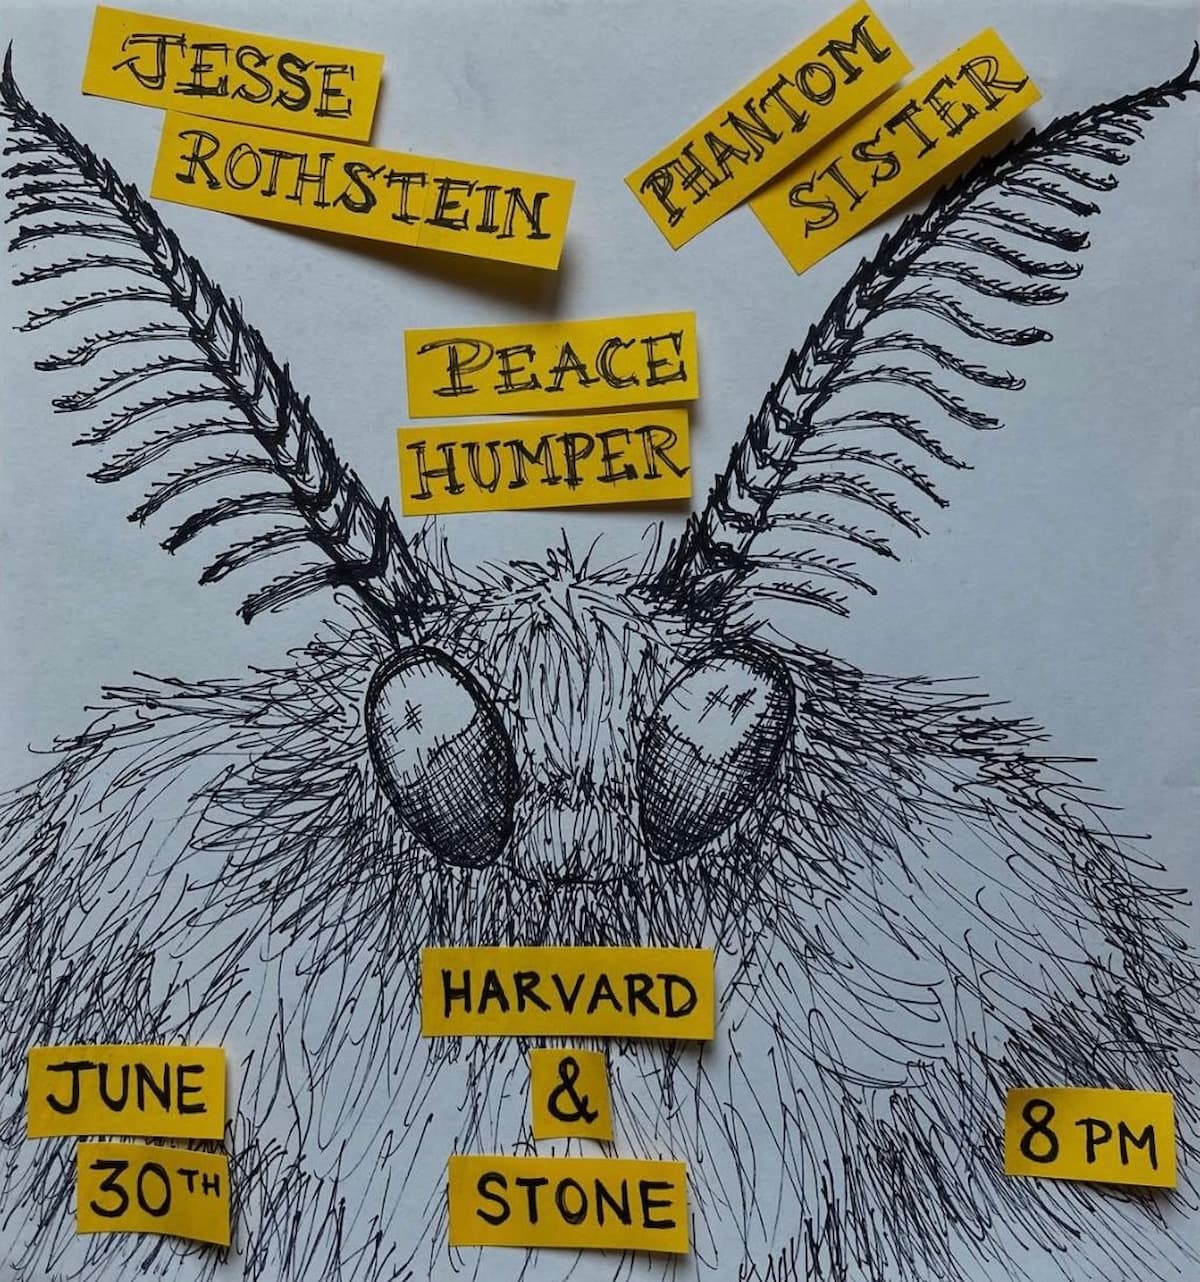 JESSE
ROTHSTEIN
PHANTOM
SISTER
PEACE
HUMPER
HARVARD
&
STONE
JUNE
30TH
8 PM